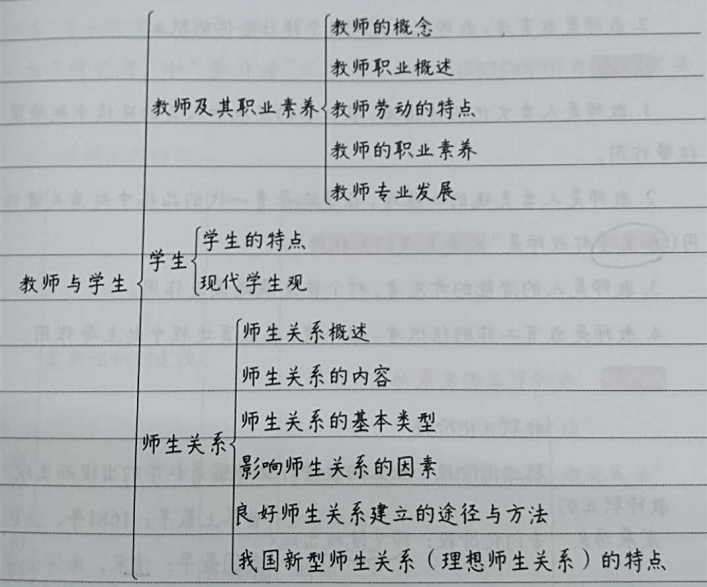 教师的概念
教师职业概述
教师及其职业素养 教师劳动的特点
教师的职业素养
教师专业发展
学生的特点
学生
现代学生观
教师与学生
师生关系概述
师生关系的内容
师生关系的基本类型
师生关系
影响师生关系的因素
良好师生关系建立的途径与方法
我国新型师生关系（理想师生关系）的特点